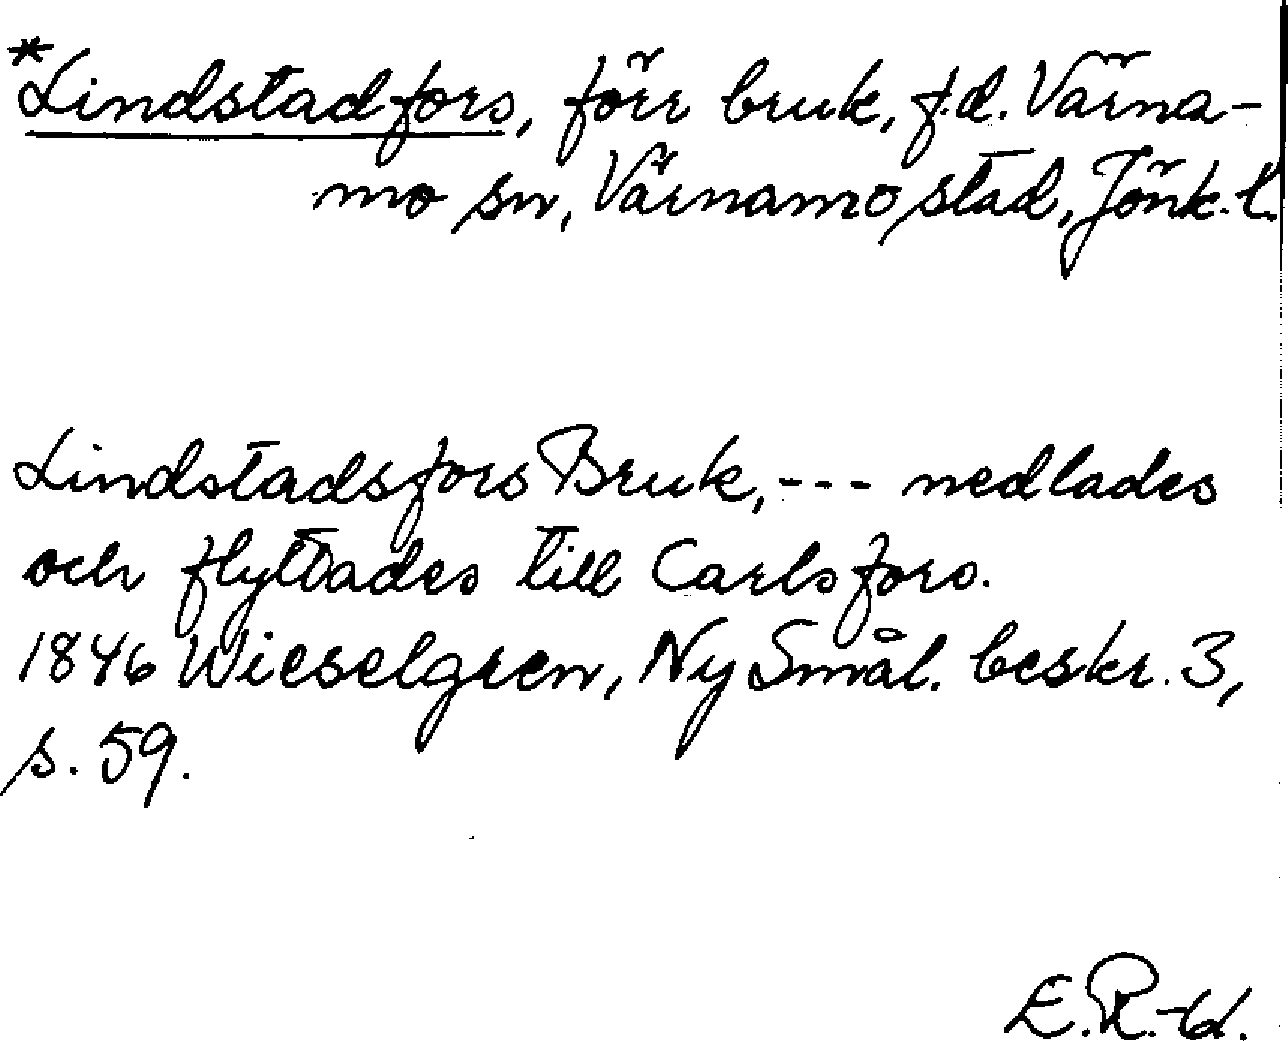 *Lindstadfors, förr bruk, f.d. Värna-
mo sn, Värnamo stad, Jönk. l.
Lindstadsfors Bruk, --- nedlades
och flyttades till Carlsfors.
1846 Wieselgren, Ny Smål. beskr. 3,
s. 59.
E.R.-